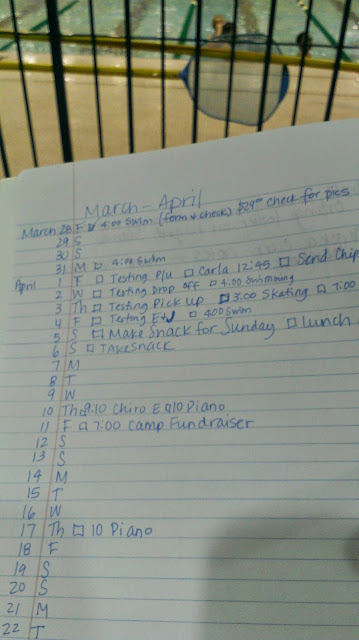 March - April
March 28 F 4:00 Swim (form & check) $29.00 check for pics
29 S
30 S
31 M 4:00 Swim
April 1 T Testing P/u Carla 12:45 Send Chip
2 W Testing Drop off 4:00 Swimming
3 Th Testing Pick Up 3:00 Skating 7:00
4 F Testing 4:00 Swim
5 S Make Snack for Sunday Lunch
6 S Take Snack
7 M
8 T
9 W
10 Th 9:10 Chiro E 10 Piano
11 F 7:00 Camp Fundraiser
12 S
13 S
14 M
15 T
16 W
17 Th 10 Piano
18 F
19 S
20 S
21 M
22 T